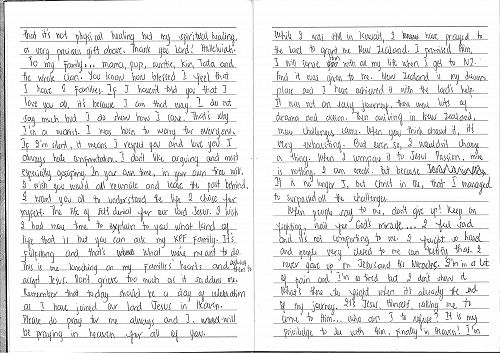 that it's not physical healing but my spiritual healing,
a very precious gift above. Thank you Lord! Hallelujah.
To my Family... mama, pup, auntie, Kim, Tata and
the whole clan. You know how blessed I feel that
I have 2 families. If I haven't told you that I
love you all, it's because I am that way. I do not
say much but I do show how I care. That's why
I'm a worrier. I was born to worry for everyone.
If I'm silent, it means I respect you and love you. I
always hate confrontation. I don't like arguing and most
especially gossiping. In your own time, in your own free will.
I wish you would all reconcile and leave the past behind.
I want you all to understand the life I chose for
myself. The life of full denial for our Lord Jesus. I wish
I had more time to explain to you what kind of
life that is but you can ask my KPT Family. It's
fulfilling and that's what we're meant to do.
This is me knocking on my families hearts and
accept Jesus. Don't grieve too much as it saddens me.
Remember that today should be a day of celebration
as I have joined our Lord Jesus in Heaven.
Please do pray for me always and I will
be praying in heaven for all of you.
While I was still in Kuwait, I have prayed to
the Lord to grant me New Zealand. I promised Him,
I will serve you with all my life when I get to NZ.
And it was given to me. New Zealand is my dream
place and I have achieved it with the Lord's help.
It was not an easy journey, there were lots of
drama and action. Upon arriving in New Zealand,
more challenges came. When you think about it, it's
very exhausting. But even so, I wouldn't change
a thing. When I compare it to Jesus Passion, mine
is nothing. I am weak, but because
It is no longer I, but Christ in me, that I managed
to surpass all the challenges.
When people say to me, don't give up! Keep on
fighting, have you God's miracle... I
and it's not comforting to me. I fought so hard
and people very close to me can testify that. I
never gave up on Jesus and His Miracles. I'm in a lot
of pain and I'm so tired but I don't show it.
What's there to fight when it's already the end
of my journey. It's Jesus Himself, calling me to
come to Him... who am I to refuse? It is my
privilege to be with Him, finally in Heaven! I'm